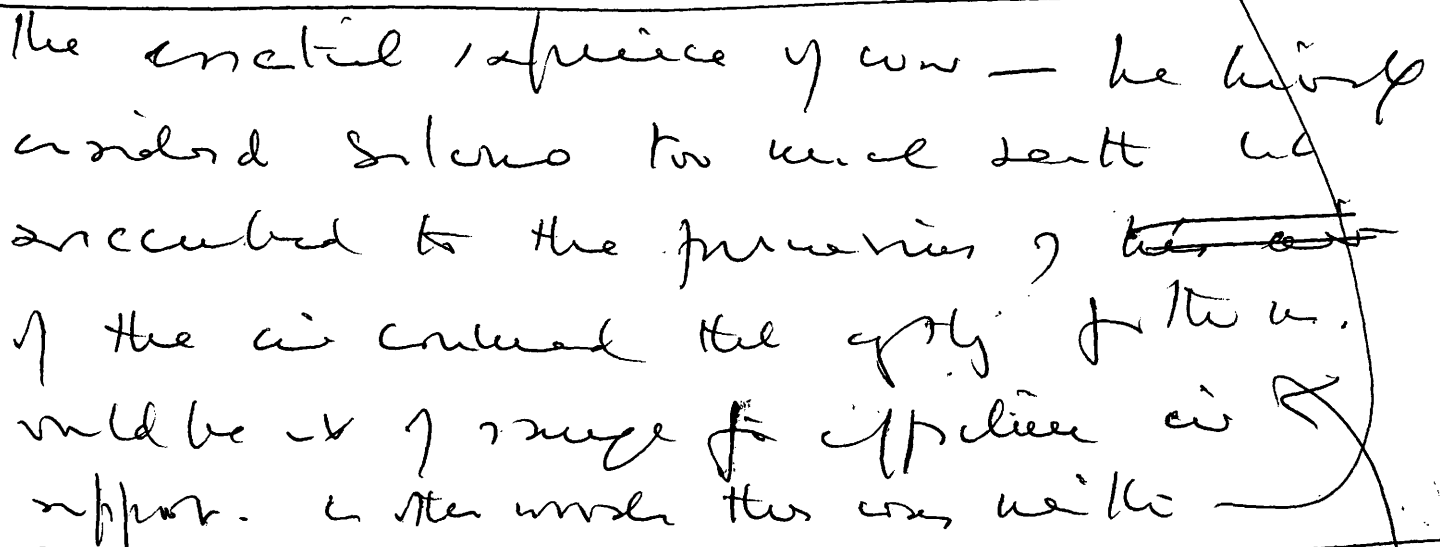 The of war — he himself
considered Salerno too much south but
succumbed to the of
of the air command that anything further n.
would be out of range for effective air
support. in other words this was neither